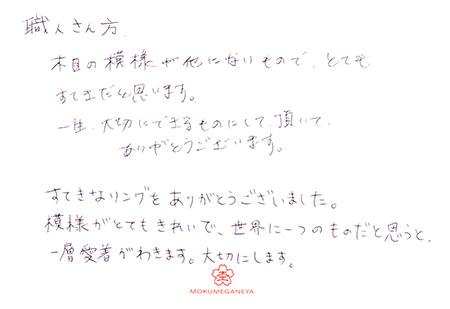 職人さん方、
木目の模様が他にないもので、とても
すてきだと思います。
一生、大切にできるものにして頂いて、
ありがとうございます。
すてきなリングをありがとうございました。
模様がとてもきれいで、世界に一つのものだと思うと、
一層愛着がわきます。大切にします。
MOKUMEGANEYA